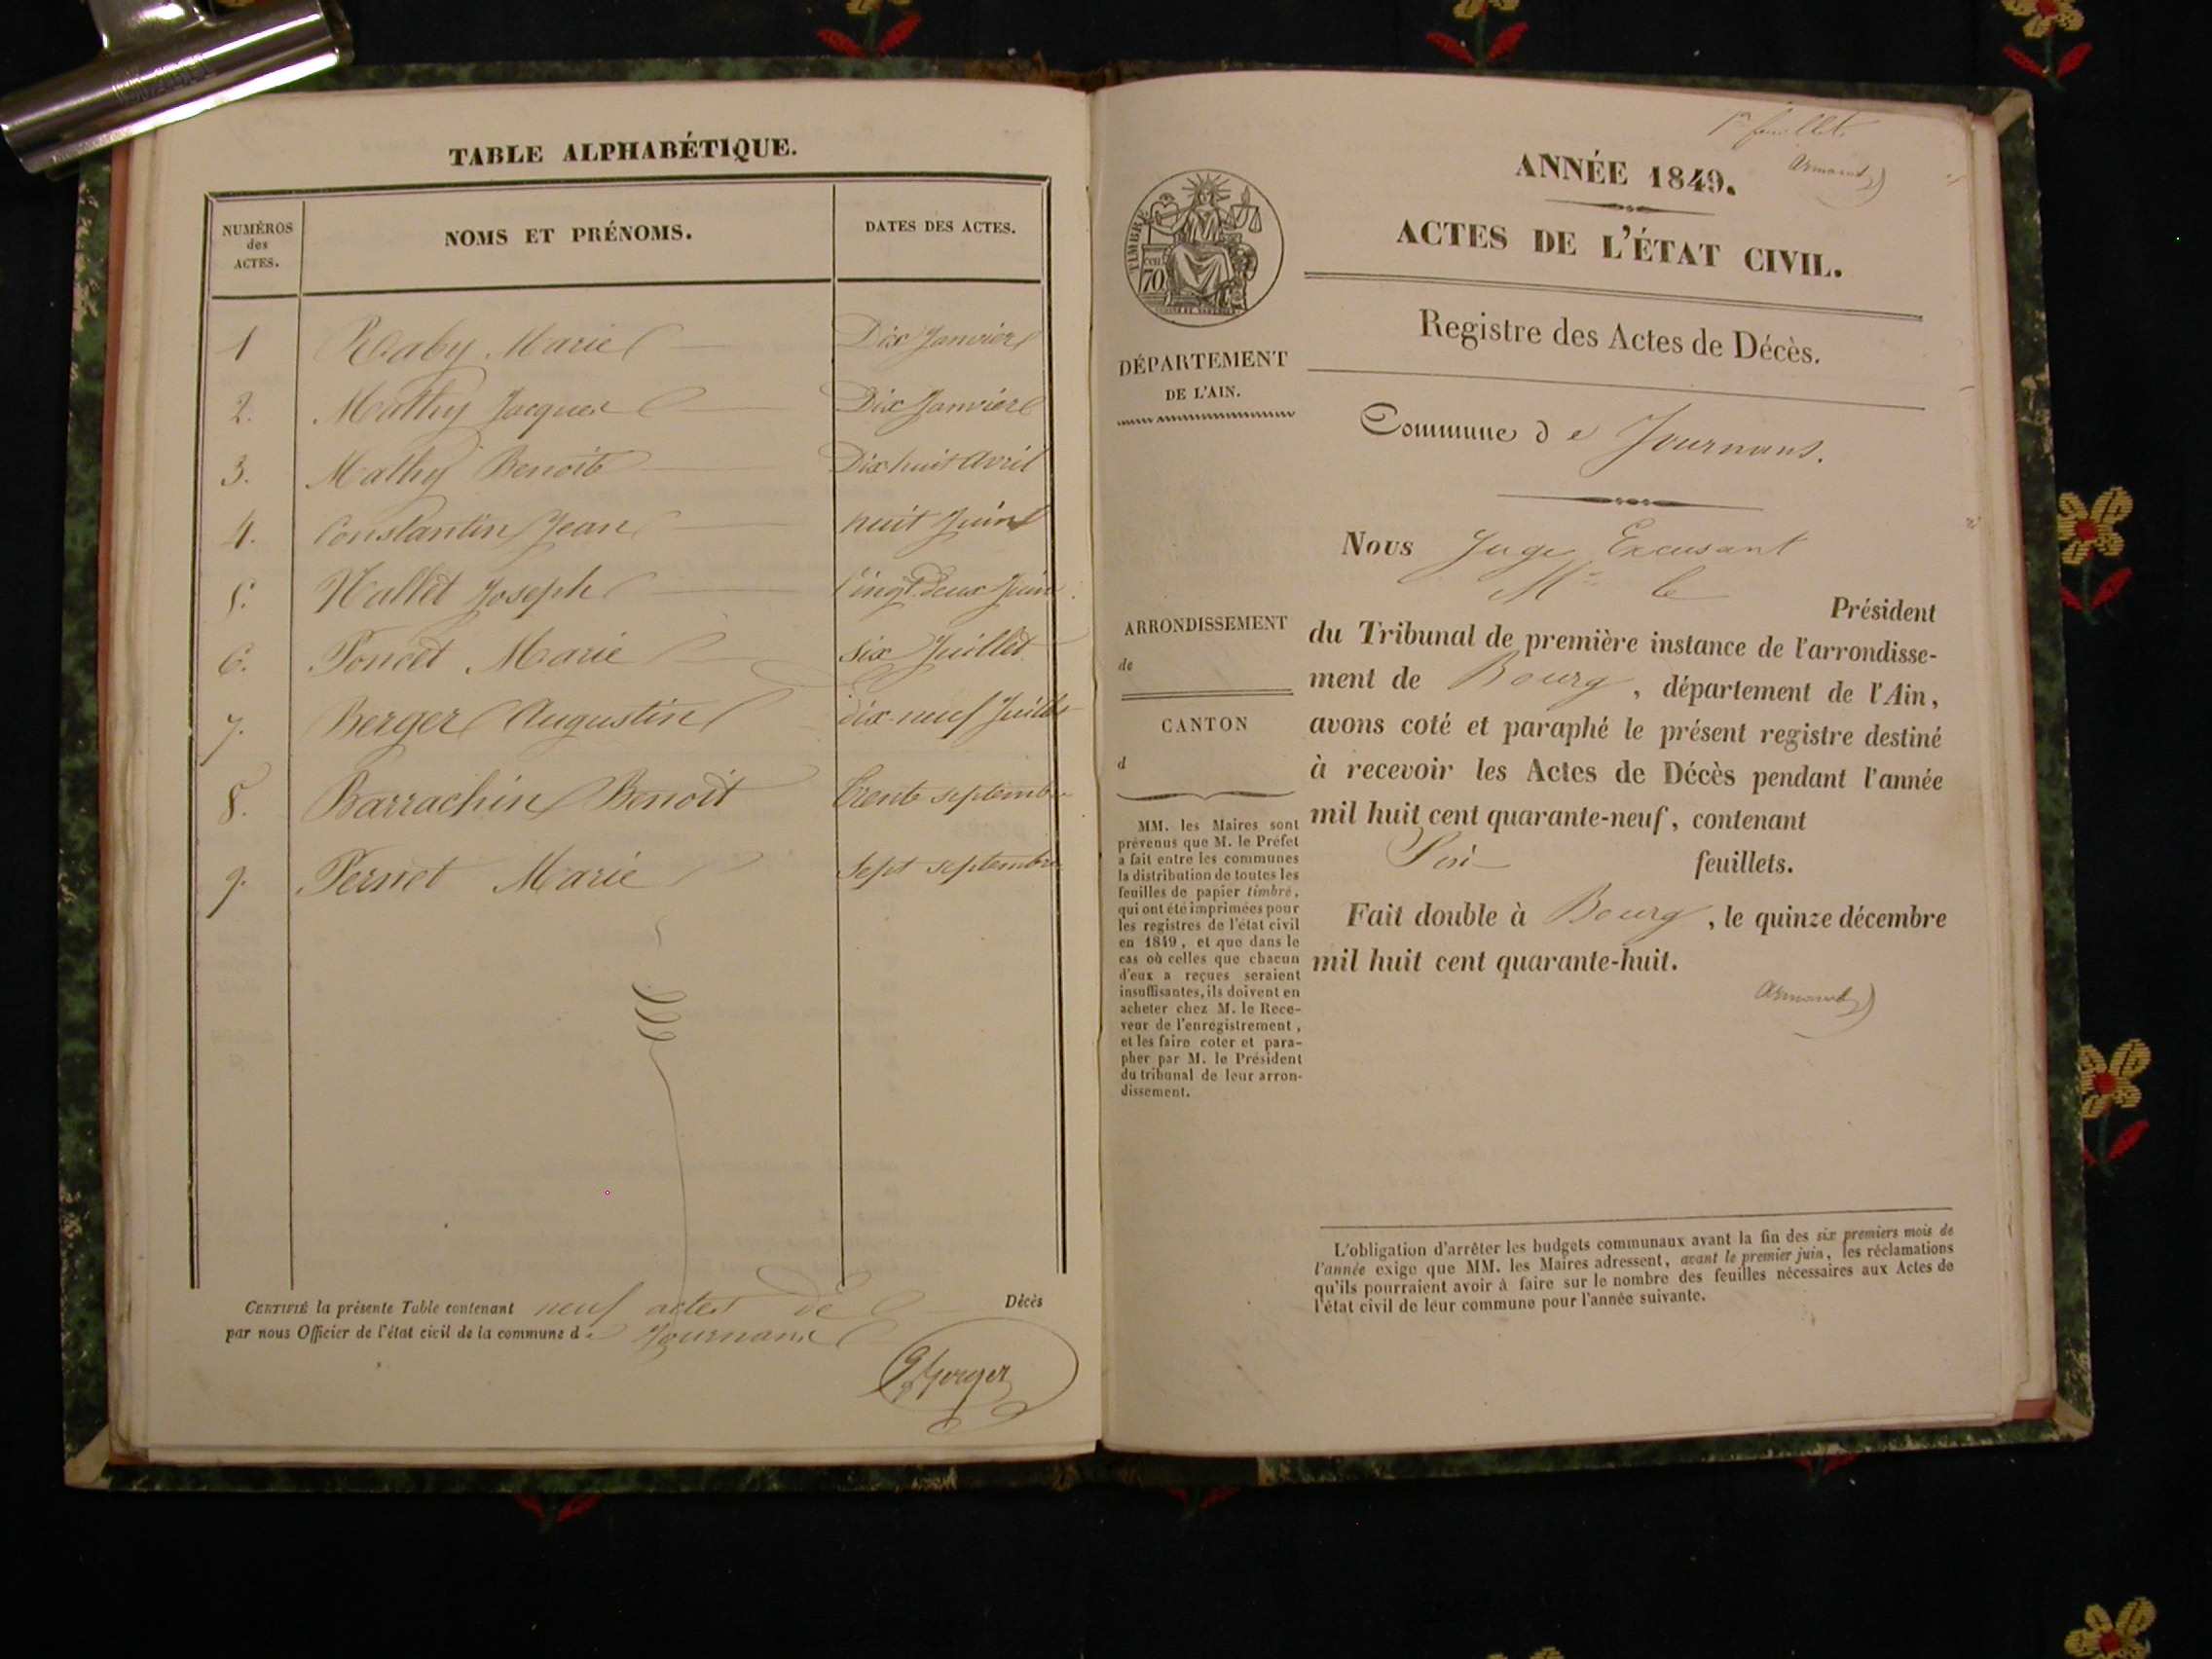 TABLE ALPHABÉTIQUE.
NUMÉROS
des
ACTES.
NOMS ET PRÉNOMS.
DATES DES ACTES.
1 Raby Marie Dix Janvier
2. Mathy Jacques Dix Janvier
3. Mathy Benoite Dix huit Avril
4. Constantin Jean huit Juin
5. Hallet Joseph Vingt deux Juin
6. Poncet Marie six Juillet
7. Berger Augustin dix-neuf Juillet
8. Barrachin Benoit trente septembre
9. Pernet Marie Sept septembre
CERTIFIÉ la présente Table contenant neuf actes de Décès
par nous Officier de l'état civil de la commune de Journans
1er feuillet
Armand
ANNÉE 1849.
ACTES DE L'ÉTAT CIVIL.
Registre des Actes de Décès.
Commune de Journans.
TIMBRE
70
DÉPARTEMENT
DE L'AIN.
ARRONDISSEMENT
de
CANTON
d
MM. les Maires sont
prévenus que M. le Préfet
a fait entre les communes
la distribution de toutes les
feuilles de papier timbré,
qui ont été imprimées pour
les registres de l'état civil
en 1849, et que dans le
cas où celles que chacun
d'eux a reçues seraient
insuffisantes, ils doivent en
acheter chez M. le Rece-
veur de l'enregistrement,
et les faire coter et para-
pher par M. le Président
du tribunal de leur arron-
dissement.
Nous Juge Excusant
Mr le
Président
du Tribunal de première instance de l'arrondisse-
ment de Bourg, département de l'Ain,
avons coté et paraphé le présent registre destiné
à recevoir les Actes de Décès pendant l'année
mil huit cent quarante-neuf, contenant
feuillets.
Fait double à Bourg, le quinze décembre
mil huit cent quarante-huit.
Armand
L'obligation d'arrêter les budgets communaux avant la fin des six premiers mois de
l'année exige que MM. les Maires adressent, avant le premier juin, les réclamations
qu'ils pourraient avoir à faire sur le nombre des feuilles nécessaires aux Actes de
l'état civil de leur commune pour l'année suivante.